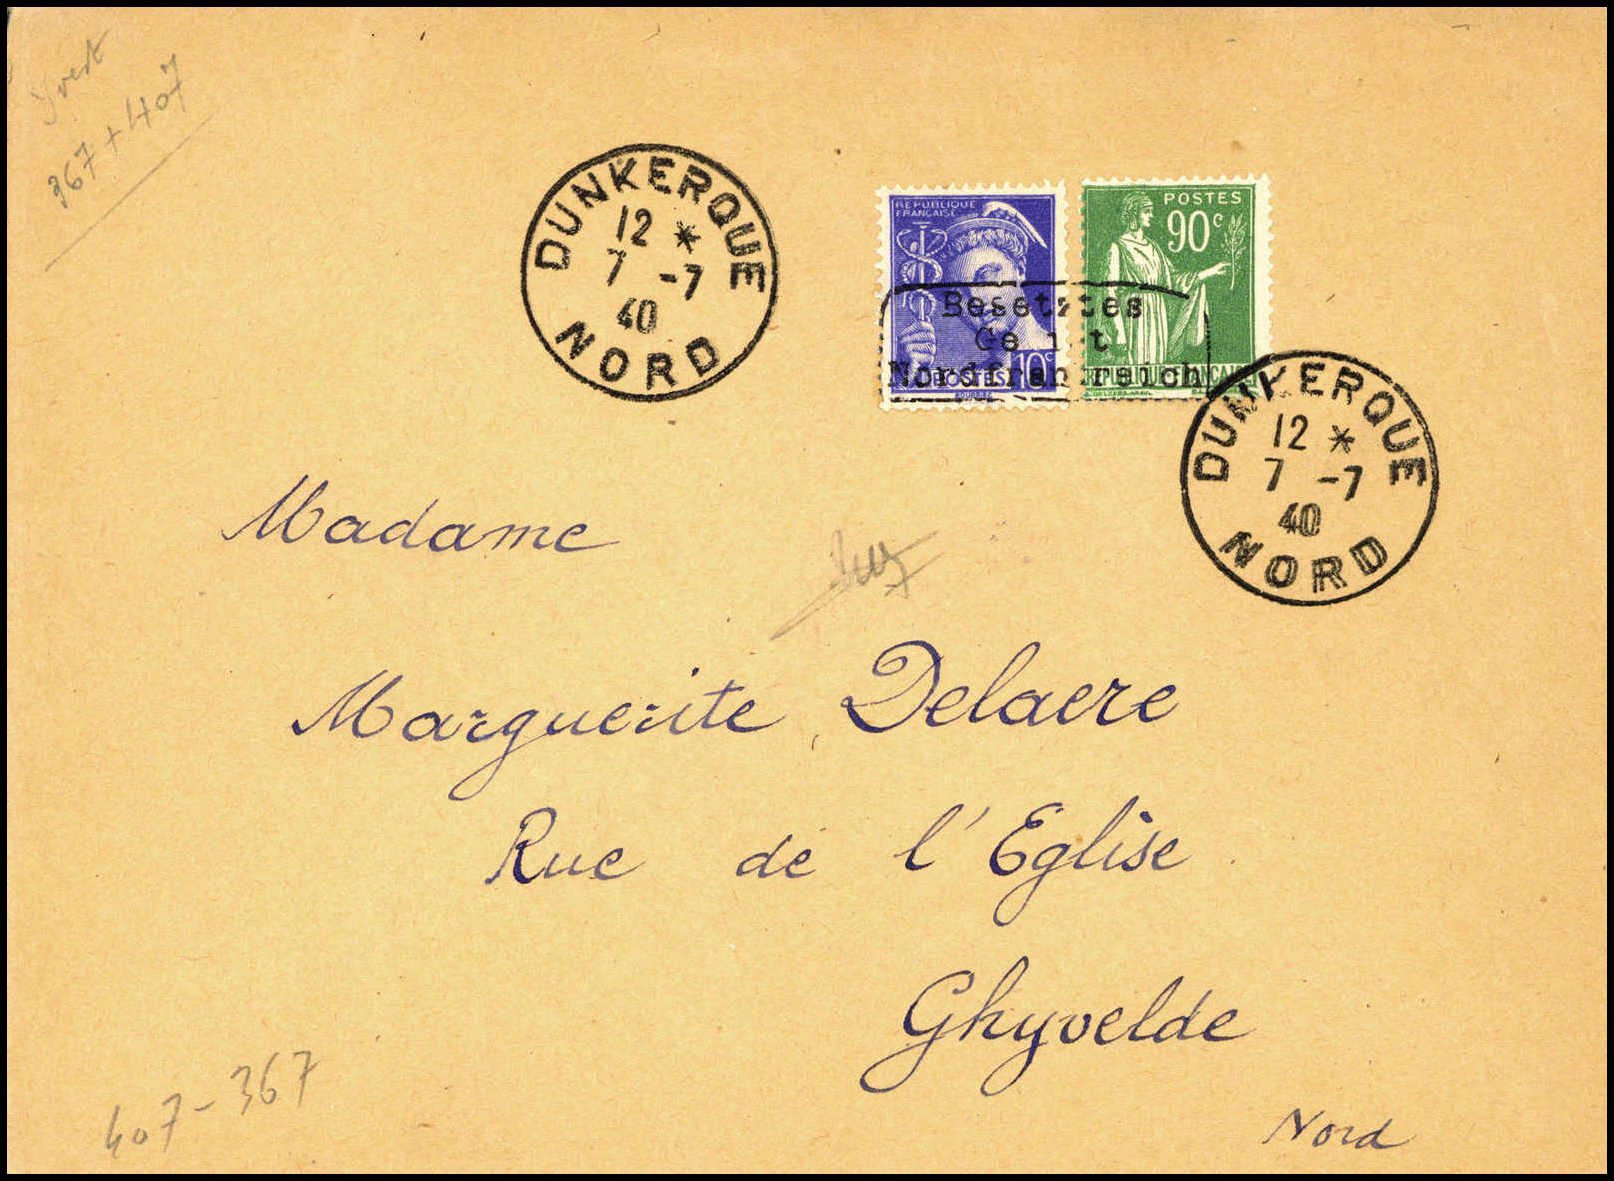 Yvert
367 + 407
DUNKERQUE
12 *
7 -7
40
NORD
REPUBLIQUE
FRANÇAISE
10c
POSTES
POSTES
90c
Besetztes
Ge i t
Nordfrankreich
DUNKERQUE
12 *
7 -7
40
NORD
Madame
Marguerite Delaere
Rue de l'Eglise
Ghyvelde
Nord
407 - 367